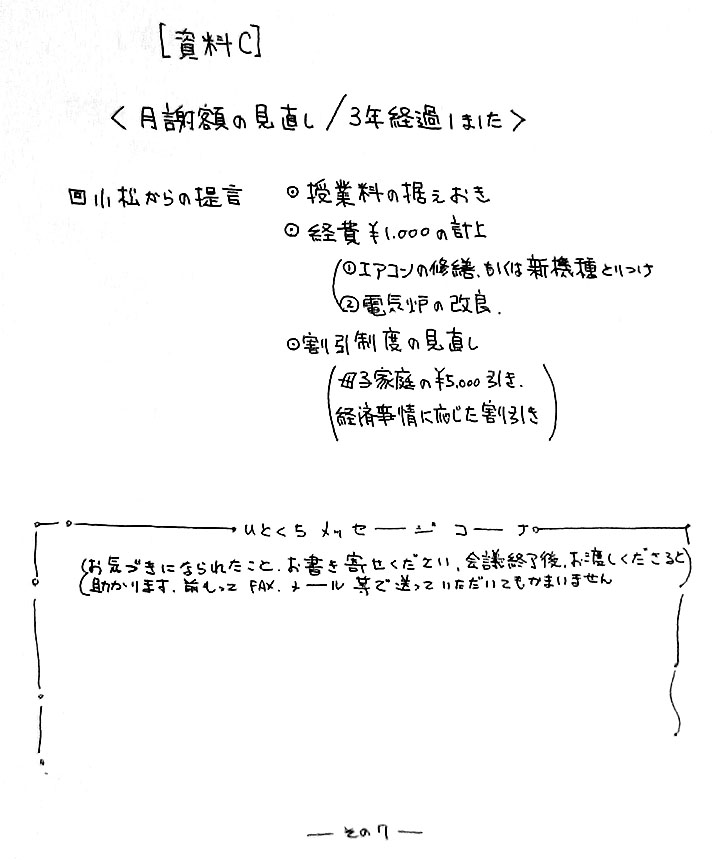 [資料C]
〈月謝額の見直し/3年経過しました〉
回小松からの提言
⊙授業料の据えおき
⊙経費¥1.000の計上
①エアコンの修繕、もしくは新機種とりつけ
②電気炉の改良.
⊙割引制度の見直し
(母子家庭の¥5,000引き.
経済事情に応じた割引き)
ひとくちメッセージコーナー
(お気づきになられたこと、お書き寄せください、会議終了後、お渡しくださると
助かります.前もってFAX.メール等で送っていただいてもかまいません)
—その7—